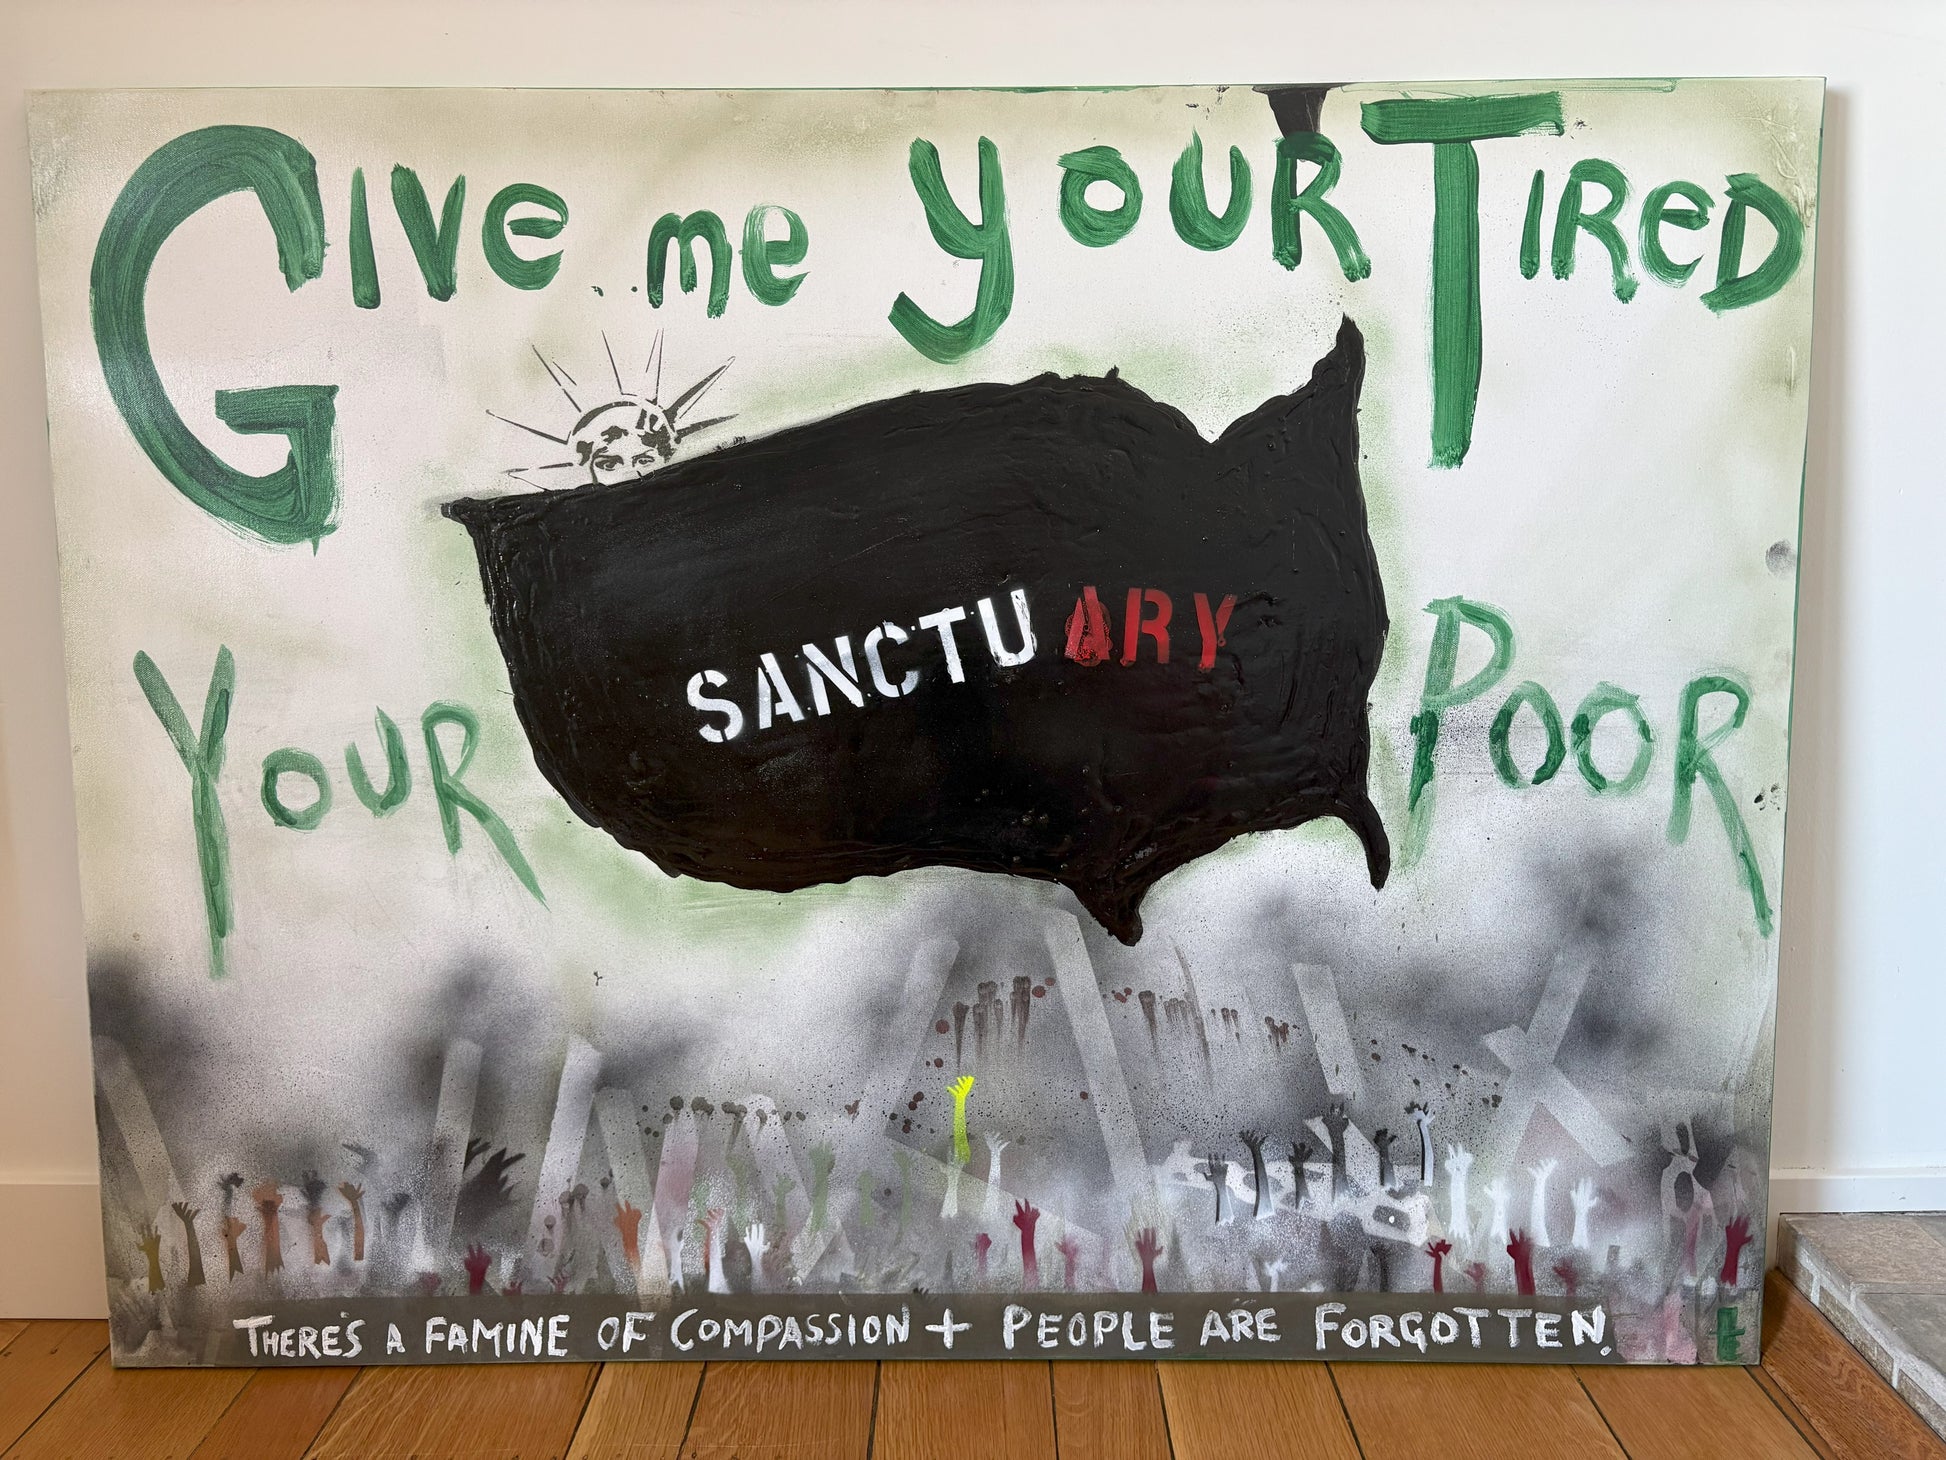 GIVe me youR TIReD
YOUR POOR
SANCTUARY
THERE'S A FAMINE OF COMPASSION + PEOPLE ARE FORGOTTEN!
t